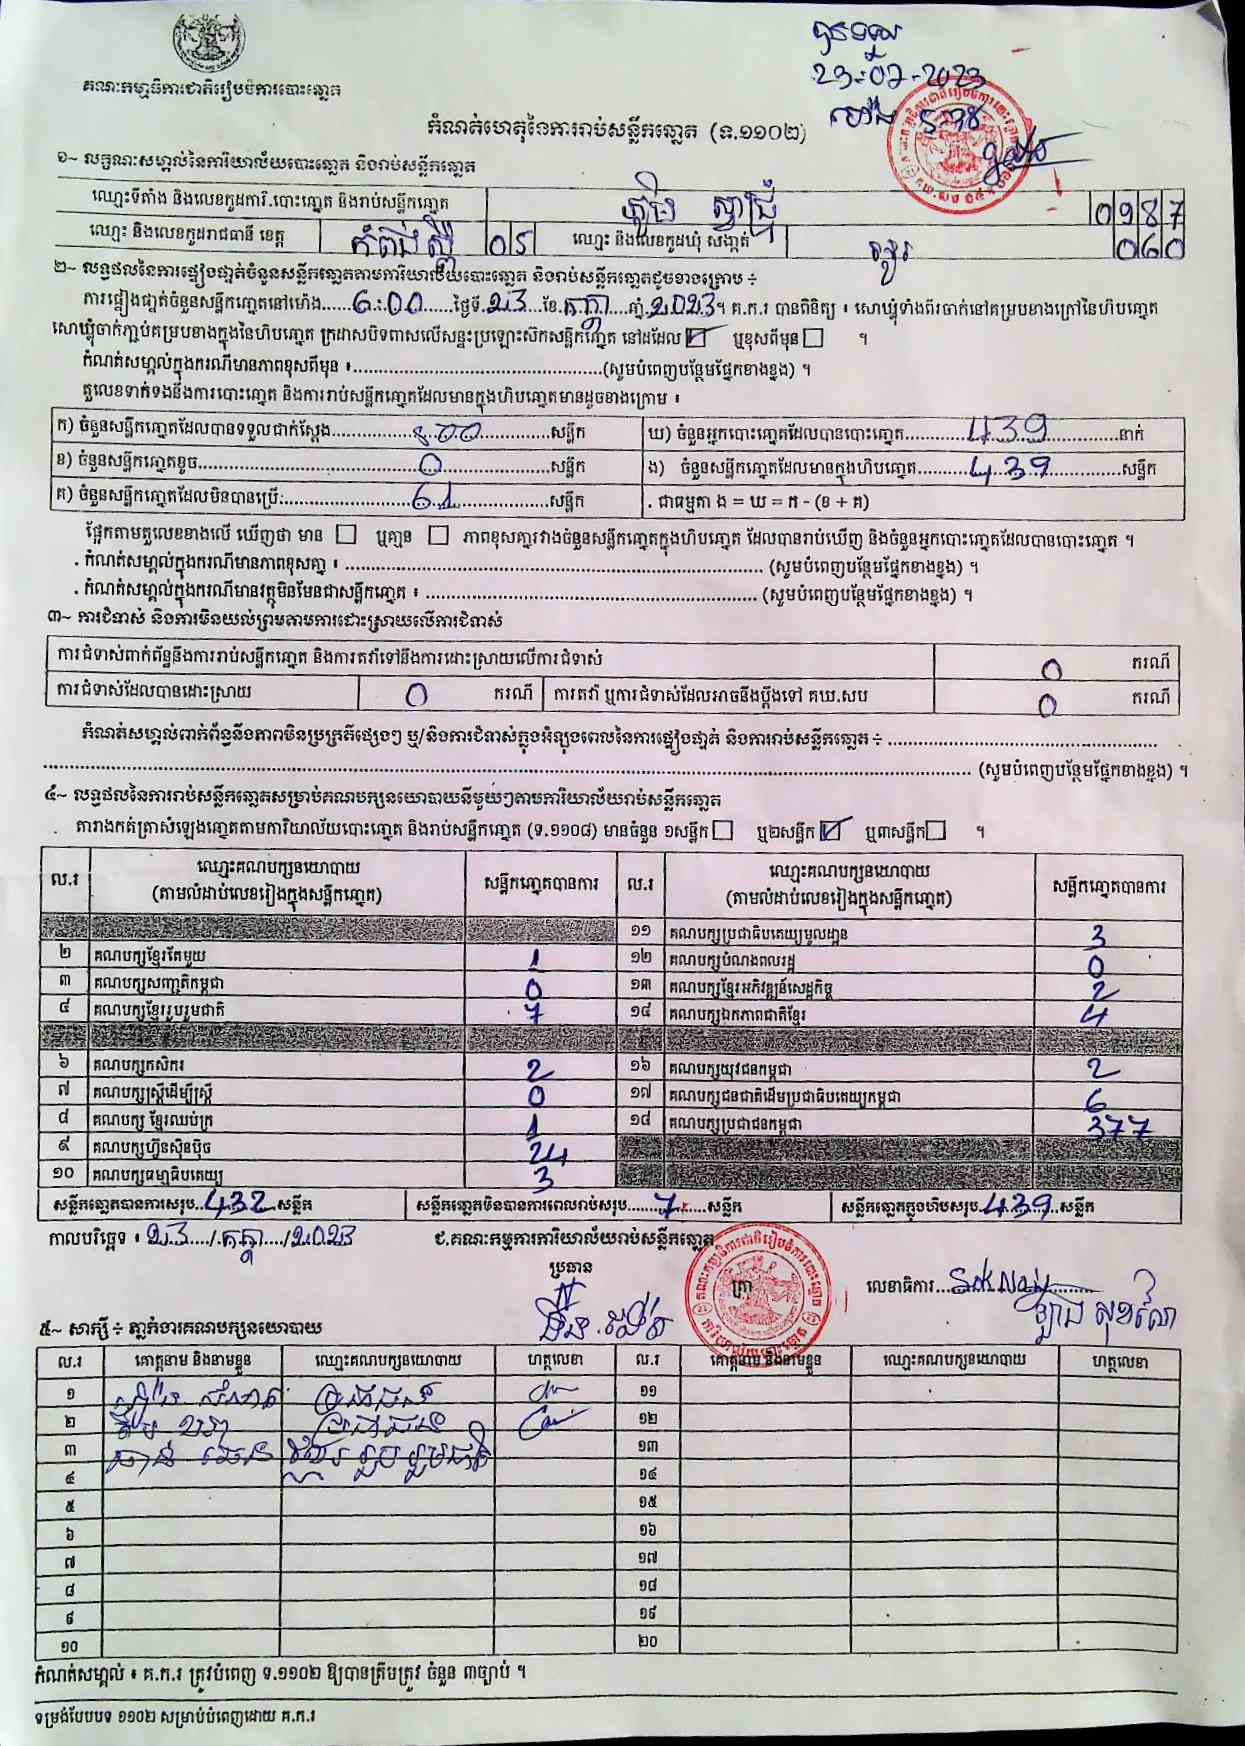 បានទទួល
23-07-2023
គណៈកម្មាធិការជាតិរៀបចំការបោះឆ្នោត
កំណត់ហេតុនៃការរាប់សន្លឹកឆ្នោត (ទ.១១០២)
១~ លក្ខណៈសម្គាល់នៃការិយាល័យបោះឆ្នោត និងរាប់សន្លឹកឆ្នោត
ឈ្មោះទីតាំង និងលេខកូដការិ.បោះឆ្នោត និងរាប់សន្លឹកឆ្នោត ភូមិ 0987
ឈ្មោះ និងលេខកូដរាជធានី ខេត្ត កំពង់ស្ពឺ 05 ឈ្មោះ និងលេខកូដឃុំ សង្កាត់ 060
២~ លទ្ធផលនៃការផ្ទៀងផ្ទាត់ចំនួនសន្លឹកឆ្នោតតាមការិយាល័យបោះឆ្នោត និងរាប់សន្លឹកឆ្នោតដូចខាងក្រោម ÷
ការផ្ទៀងផ្ទាត់ចំនួនសន្លឹកឆ្នោតនៅម៉ោង......6:00......ថ្ងៃទី.23...ខែ.កក្កដា...ឆ្នាំ.2023។ គ.ក.រ បានពិនិត្យ ៖ សោឃ្នុំទាំងពីរចាក់នៅគម្របខាងក្រៅនៃហិបឆ្នោត
សោឃ្នុំចាក់ភ្ជាប់គម្របខាងក្នុងនៃហិបឆ្នោត ក្រដាសបិទពាសលើសន្ទះប្រឡោះស៊កសន្លឹកឆ្នោត នៅដដែល ☑ ឬខុសពីមុន ☐ ។
កំណត់សម្គាល់ក្នុងករណីមានភាពខុសពីមុន ៖..............................(សូមបំពេញបន្ថែមផ្នែកខាងខ្នង) ។
តួលេខទាក់ទងនឹងការបោះឆ្នោត និងការរាប់សន្លឹកឆ្នោតដែលមានក្នុងហិបឆ្នោតមានដូចខាងក្រោម ៖
ក) ចំនួនសន្លឹកឆ្នោតដែលបានទទួលជាក់ស្តែង..........500..........សន្លឹក ឃ) ចំនួនអ្នកបោះឆ្នោតដែលបានបោះឆ្នោត..........439..........នាក់
ខ) ចំនួនសន្លឹកឆ្នោតខូច..........0..........សន្លឹក ង) ចំនួនសន្លឹកឆ្នោតដែលមានក្នុងហិបឆ្នោត..........439..........សន្លឹក
គ) ចំនួនសន្លឹកឆ្នោតដែលមិនបានប្រើ:..........61..........សន្លឹក . ជាធម្មតា ង = ឃ = ក - (ខ + គ)
ផ្អែកតាមតួលេខខាងលើ ឃើញថា មាន ☐ ឬគ្មាន ☐ ភាពខុសគ្នារវាងចំនួនសន្លឹកឆ្នោតក្នុងហិបឆ្នោត ដែលបានរាប់ឃើញ និងចំនួនអ្នកបោះឆ្នោតដែលបានបោះឆ្នោត ។
. កំណត់សម្គាល់ក្នុងករណីមានភាពខុសគ្នា ៖ .............................. (សូមបំពេញបន្ថែមផ្នែកខាងខ្នង) ។
. កំណត់សម្គាល់ក្នុងករណីមានវត្ថុមិនមែនជាសន្លឹកឆ្នោត ៖ .............................. (សូមបំពេញបន្ថែមផ្នែកខាងខ្នង) ។
៣~ ការជំទាស់ និងការមិនយល់ព្រមតាមការដោះស្រាយលើការជំទាស់
ការជំទាស់ពាក់ព័ន្ធនឹងការរាប់សន្លឹកឆ្នោត និងការតវ៉ាទៅនឹងការដោះស្រាយលើការជំទាស់ 0 ករណី
ការជំទាស់ដែលបានដោះស្រាយ 0 ករណី ការតវ៉ា ឬការជំទាស់ដែលអាចនឹងប្តឹងទៅ គឃ.សប 0 ករណី
កំណត់សម្គាល់ពាក់ព័ន្ធនឹងភាពមិនប្រក្រតីផ្សេងៗ ឬ/និងការជំទាស់ក្នុងអំឡុងពេលនៃការផ្ទៀងផ្ទាត់ និងការរាប់សន្លឹកឆ្នោត ÷ ..............................
.............................. (សូមបំពេញបន្ថែមផ្នែកខាងខ្នង) ។
៤~ លទ្ធផលនៃការរាប់សន្លឹកឆ្នោតសម្រាប់គណបក្សនយោបាយនីមួយៗតាមការិយាល័យរាប់សន្លឹកឆ្នោត
តារាងកត់ត្រាសំឡេងឆ្នោតតាមការិយាល័យបោះឆ្នោត និងរាប់សន្លឹកឆ្នោត (ទ.១១០៨) មានចំនួន ១សន្លឹក ☐ ឬ២សន្លឹក ☑ ឬ៣សន្លឹក ☐ ។
ល.រ ឈ្មោះគណបក្សនយោបាយ (តាមលំដាប់លេខរៀងក្នុងសន្លឹកឆ្នោត) សន្លឹកឆ្នោតបានការ ល.រ ឈ្មោះគណបក្សនយោបាយ (តាមលំដាប់លេខរៀងក្នុងសន្លឹកឆ្នោត) សន្លឹកឆ្នោតបានការ
១១ គណបក្សប្រជាធិបតេយ្យមូលដ្ឋាន 3
២ គណបក្សខ្មែរតែមួយ 1 ១២ គណបក្សបំណងពលរដ្ឋ 0
៣ គណបក្សសញ្ជាតិកម្ពុជា 0 ១៣ គណបក្សខ្មែរអភិវឌ្ឍន៍សេដ្ឋកិច្ច 2
៤ គណបក្សខ្មែររួបរួមជាតិ 7 ១៤ គណបក្សឯកភាពជាតិខ្មែរ 4
៦ គណបក្សកសិករ 2 ១៦ គណបក្សយុវជនកម្ពុជា 2
៧ គណបក្សស្ត្រីដើម្បីស្ត្រី 0 ១៧ គណបក្សជនជាតិដើមប្រជាធិបតេយ្យកម្ពុជា 6
៨ គណបក្ស ខ្មែរឈប់ក្រ 1 ១៨ គណបក្សប្រជាជនកម្ពុជា 377
៩ គណបក្សហ៊្វុនស៊ិនប៉ិច 24
១០ គណបក្សធម្មាធិបតេយ្យ 3
សន្លឹកឆ្នោតបានការសរុប..432...សន្លឹក សន្លឹកឆ្នោតមិនបានការពេលរាប់សរុប......7......សន្លឹក សន្លឹកឆ្នោតក្នុងហិបសរុប..439...សន្លឹក
កាលបរិច្ឆេទ ៖ 23..../.កក្កដា.../2023 ជ.គណៈកម្មការការិយាល័យរាប់សន្លឹកឆ្នោត
ប្រធាន ត្រា លេខាធិការ
៥~ សាក្សី ÷ ភ្នាក់ងារគណបក្សនយោបាយ
ល.រ គោត្តនាម និងនាមខ្លួន ឈ្មោះគណបក្សនយោបាយ ហត្ថលេខា ល.រ គោត្តនាម និងនាមខ្លួន ឈ្មោះគណបក្សនយោបាយ ហត្ថលេខា
១ ប្រជាជន ១១
២ ប្រជាជន ១២
៣ ខ្មែររួបរួមជាតិ ១៣
៤ ១៤
៥ ១៥
៦ ១៦
៧ ១៧
៨ ១៨
៩ ១៩
១០ ២០
កំណត់សម្គាល់ ៖ គ.ក.រ ត្រូវបំពេញ ទ.១១០២ ឱ្យបានត្រឹមត្រូវ ចំនួន ៣ច្បាប់ ។
ទម្រង់បែបបទ ១១០២ សម្រាប់បំពេញដោយ គ.ក.រ